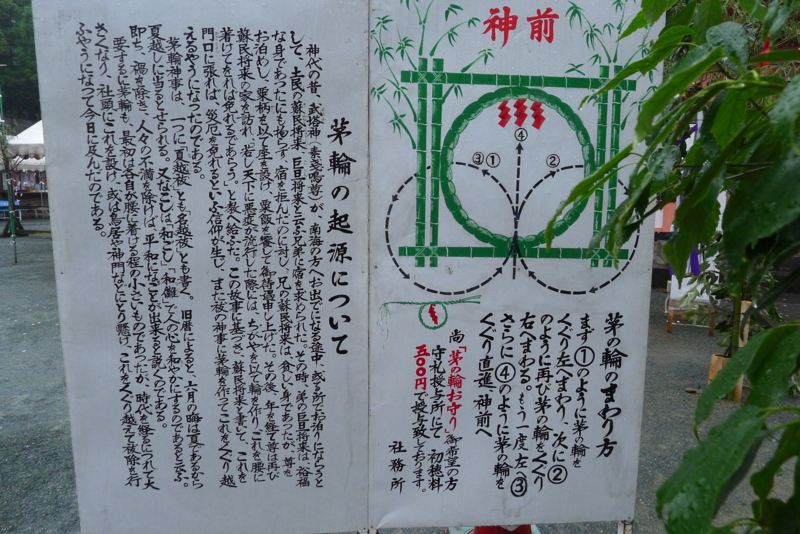 神前
④
③①
②
茅の輪のまわり方
まず①のように茅の輪を
くぐり左へまわり、次に②
のように再び茅の輪をくぐり
右へまわる。もう一度左③
さらに④のように茅の輪を
くぐり直進 神前へ
尚「茅の輪お守り」御希望の方
守札授与所にて初穂料
五〇〇円で授与致しております。
社務所
茅輪の起源について
神代の昔、武塔神（素盞嗚尊）が、南海の方へお出でになる途中、或る所でお泊りにならうと
して、土民の蘇民将来 巨旦将来と云ふ兄弟に宿を求められた。その時、弟の巨旦将来は、裕福
な身であったにも拘らず、宿を拒んだのに対し、兄の蘇民将来は、貧しい身であったが、尊を
お泊めし、粟柄を以て座を設け、粟飯を饗して御待遇申し上げた。その後、年を経て尊は再び
蘇民将来の家を訪れ、若し天下に悪疫が流行した際には、ちがやを以て輪を作り、これを腰に
着けてをれば免れるであらう。と教へ給ふた。この故事に基づき、蘇民将来と書いて、これを
門口に張れば、災厄を免れるといふ信仰が生じ、また祓の神事に茅輪を作ってこれをくぐり越
えるやうになったのである。
茅輪神事は、一つに夏越祓とも名越祓とも書く。旧暦によると、六月の晦は夏であるから
夏越しに当るとせられる。又なごしは「和ごし」「和儺」で人の心を和やかにするのであると云ふ。
即ち、禍を除き、人々の不満を除けば、平和になることが出来ると説くのである。
要するに茅輪も、最初は各自が腰に着ける程の小さいものであったが、時代を経るにつれて大
きくなり、社頭にこれを設け、或は鳥居や神門などに懸け、これをくぐり越えて祓除を行
ふやうになって今日に及んだのである。